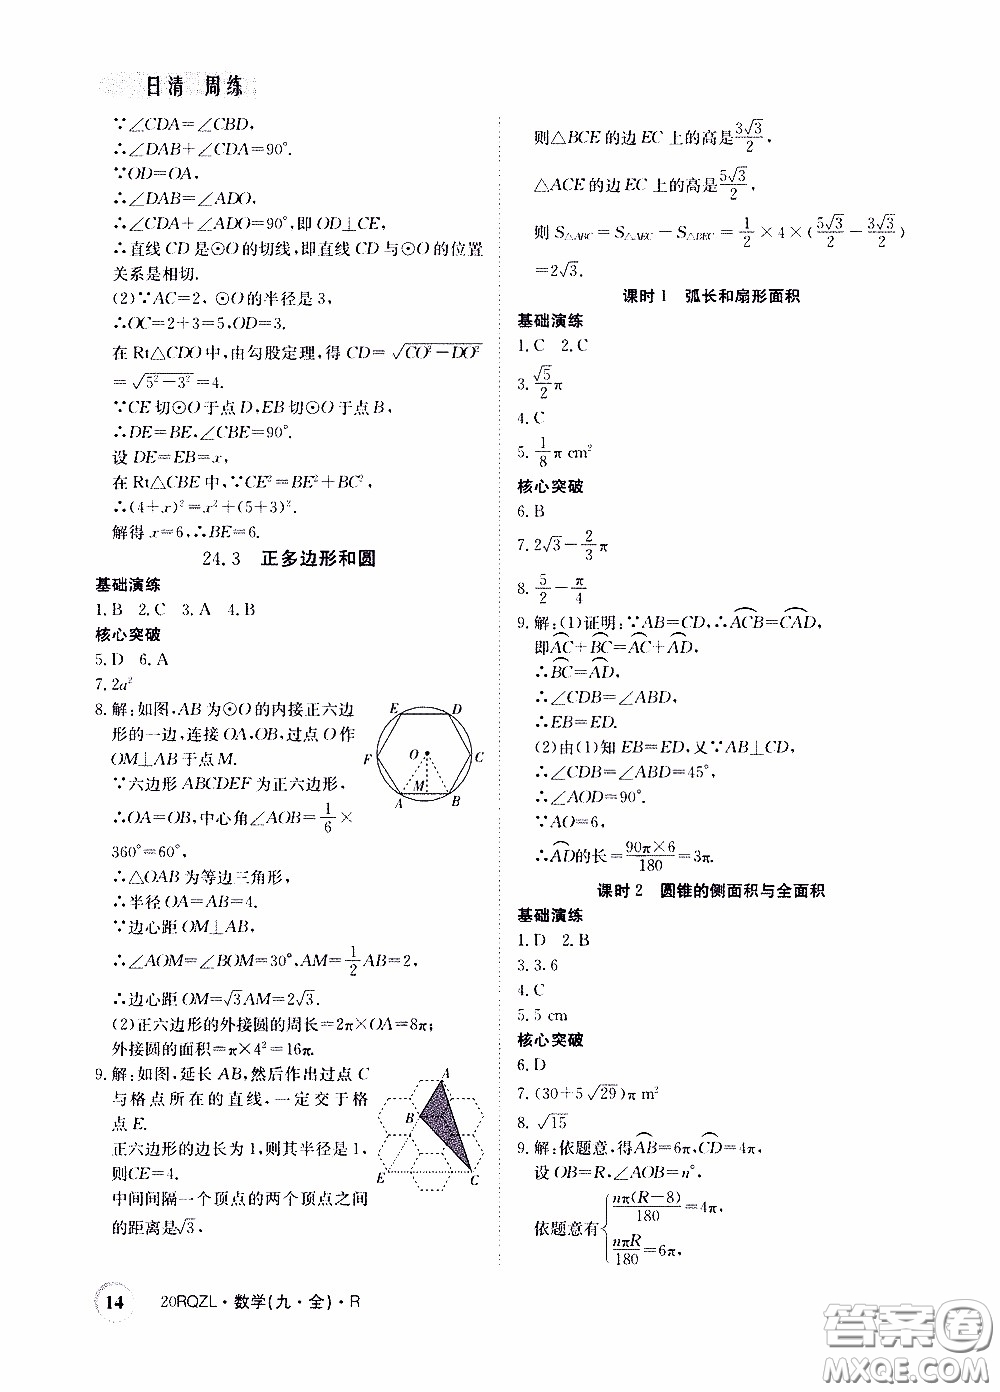 日清 周练
∵∠CDA=∠CBD,
∴∠DAB+∠CDA=90°.
∵OD=OA,
∴∠DAB=∠ADO,
∴∠CDA+∠ADO=90°,即 OD⊥CE,
∴直线 CD 是⊙O 的切线,即直线 CD 与⊙O 的位置
关系是相切.
(2)∵AC=2, ⊙O 的半径是 3,
∴OC=2+3=5,OD=3.
在 Rt△CDO 中,由勾股定理,得 CD=√(CO²-DO²)
=√(5²-3²)=4.
∵CE 切⊙O 于点 D,EB 切⊙O 于点 B,
∴DE=BE,∠CBE=90°.
设 DE=EB=x,
在 Rt△CBE 中,∵CE²=BE²+BC²,
∴(4+x)²=x²+(5+3)².
解得 x=6,∴BE=6.
24.3 正多边形和圆
基础演练
1. B 2. C 3. A 4. B
核心突破
5. D 6. A
7. 2a²
8. 解:如图,AB 为⊙O 的内接正六边
形的一边,连接 OA,OB,过点 O 作
OM⊥AB 于点 M.
∵六边形 ABCDEF 为正六边形,
∴OA=OB,中心角∠AOB=1/6×
360°=60°,
∴△OAB 为等边三角形,
∴半径 OA=AB=4.
∵边心距 OM⊥AB,
∴∠AOM=∠BOM=30°,AM=1/2AB=2,
∴边心距 OM=√3AM=2√3.
(2)正六边形的外接圆的周长=2π×OA=8π;
外接圆的面积=π×4²=16π.
E D
F O C
M
A B
9. 解:如图,延长 AB,然后作出过点 C
与格点所在的直线,一定交于格
点 E.
正六边形的边长为 1,则半径是 1,
则CE=4.
中间间隔一个顶点的两个顶点之间
的距离是√3,
A
B
E C
则△BCE 的边 EC 上的高是3√3/2,
△ACE 的边 EC 上的高是5√3/2,
则 S△ABC=S△AEC-S△BEC=1/2×4×(5√3/2-3√3/2)
=2√3.
课时 1 弧长和扇形面积
基础演练
1. C 2. C
3. √5/2π
4. C
5. 1/8π cm²
核心突破
6. B
7. 2√3-2/3π
8. 5/2-π/4
9. 解:(1)证明:∵AB=CD,∴⌒ACB=⌒CAD,
即⌒AC+⌒BC=⌒AC+⌒AD,
∴⌒BC=⌒AD,
∴∠CDB=∠ABD,
∴EB=ED.
(2)由(1)知 EB=ED,又∵AB⊥CD,
∴∠CDB=∠ABD=45°,
∴∠AOD=90°.
∵AO=6,
∴⌒AD的长=90π×6/180=3π.
课时 2 圆锥的侧面积与全面积
基础演练
1. D 2. B
3. 3.6
4. C
5. 5 cm
核心突破
6. D
7. (30+5√29)π m²
8. √15
9. 解:依题意,得⌒AB=6π,⌒CD=4π,
设 OB=R,∠AOB=n°,
依题意有{nπ(R-8)/180=4π,
nπR/180=6π,
14 20RQZL·数学(九·全)·R
答案圈
MXQE.COM